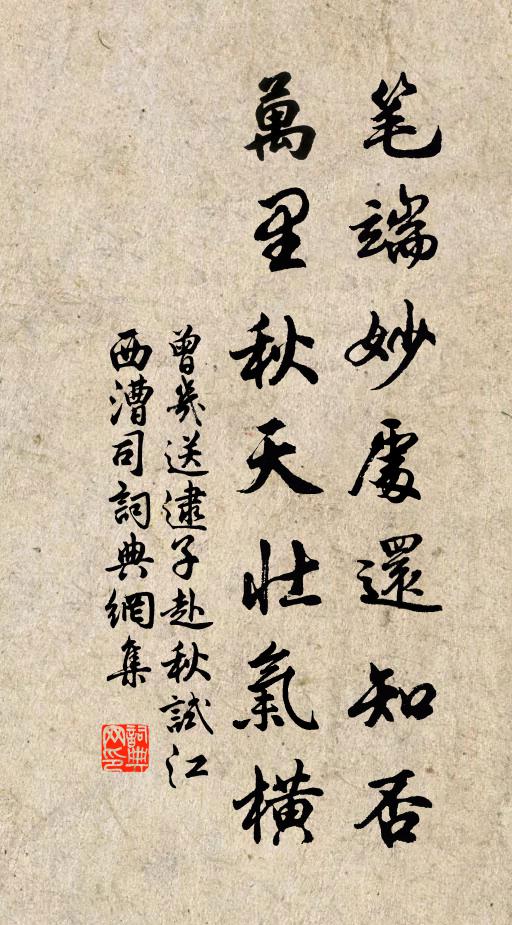 笔端妙處還知否
萬里秋天壮氣横
曾幾送逮子赴秋試江
西漕司詞典網集
詞典网印